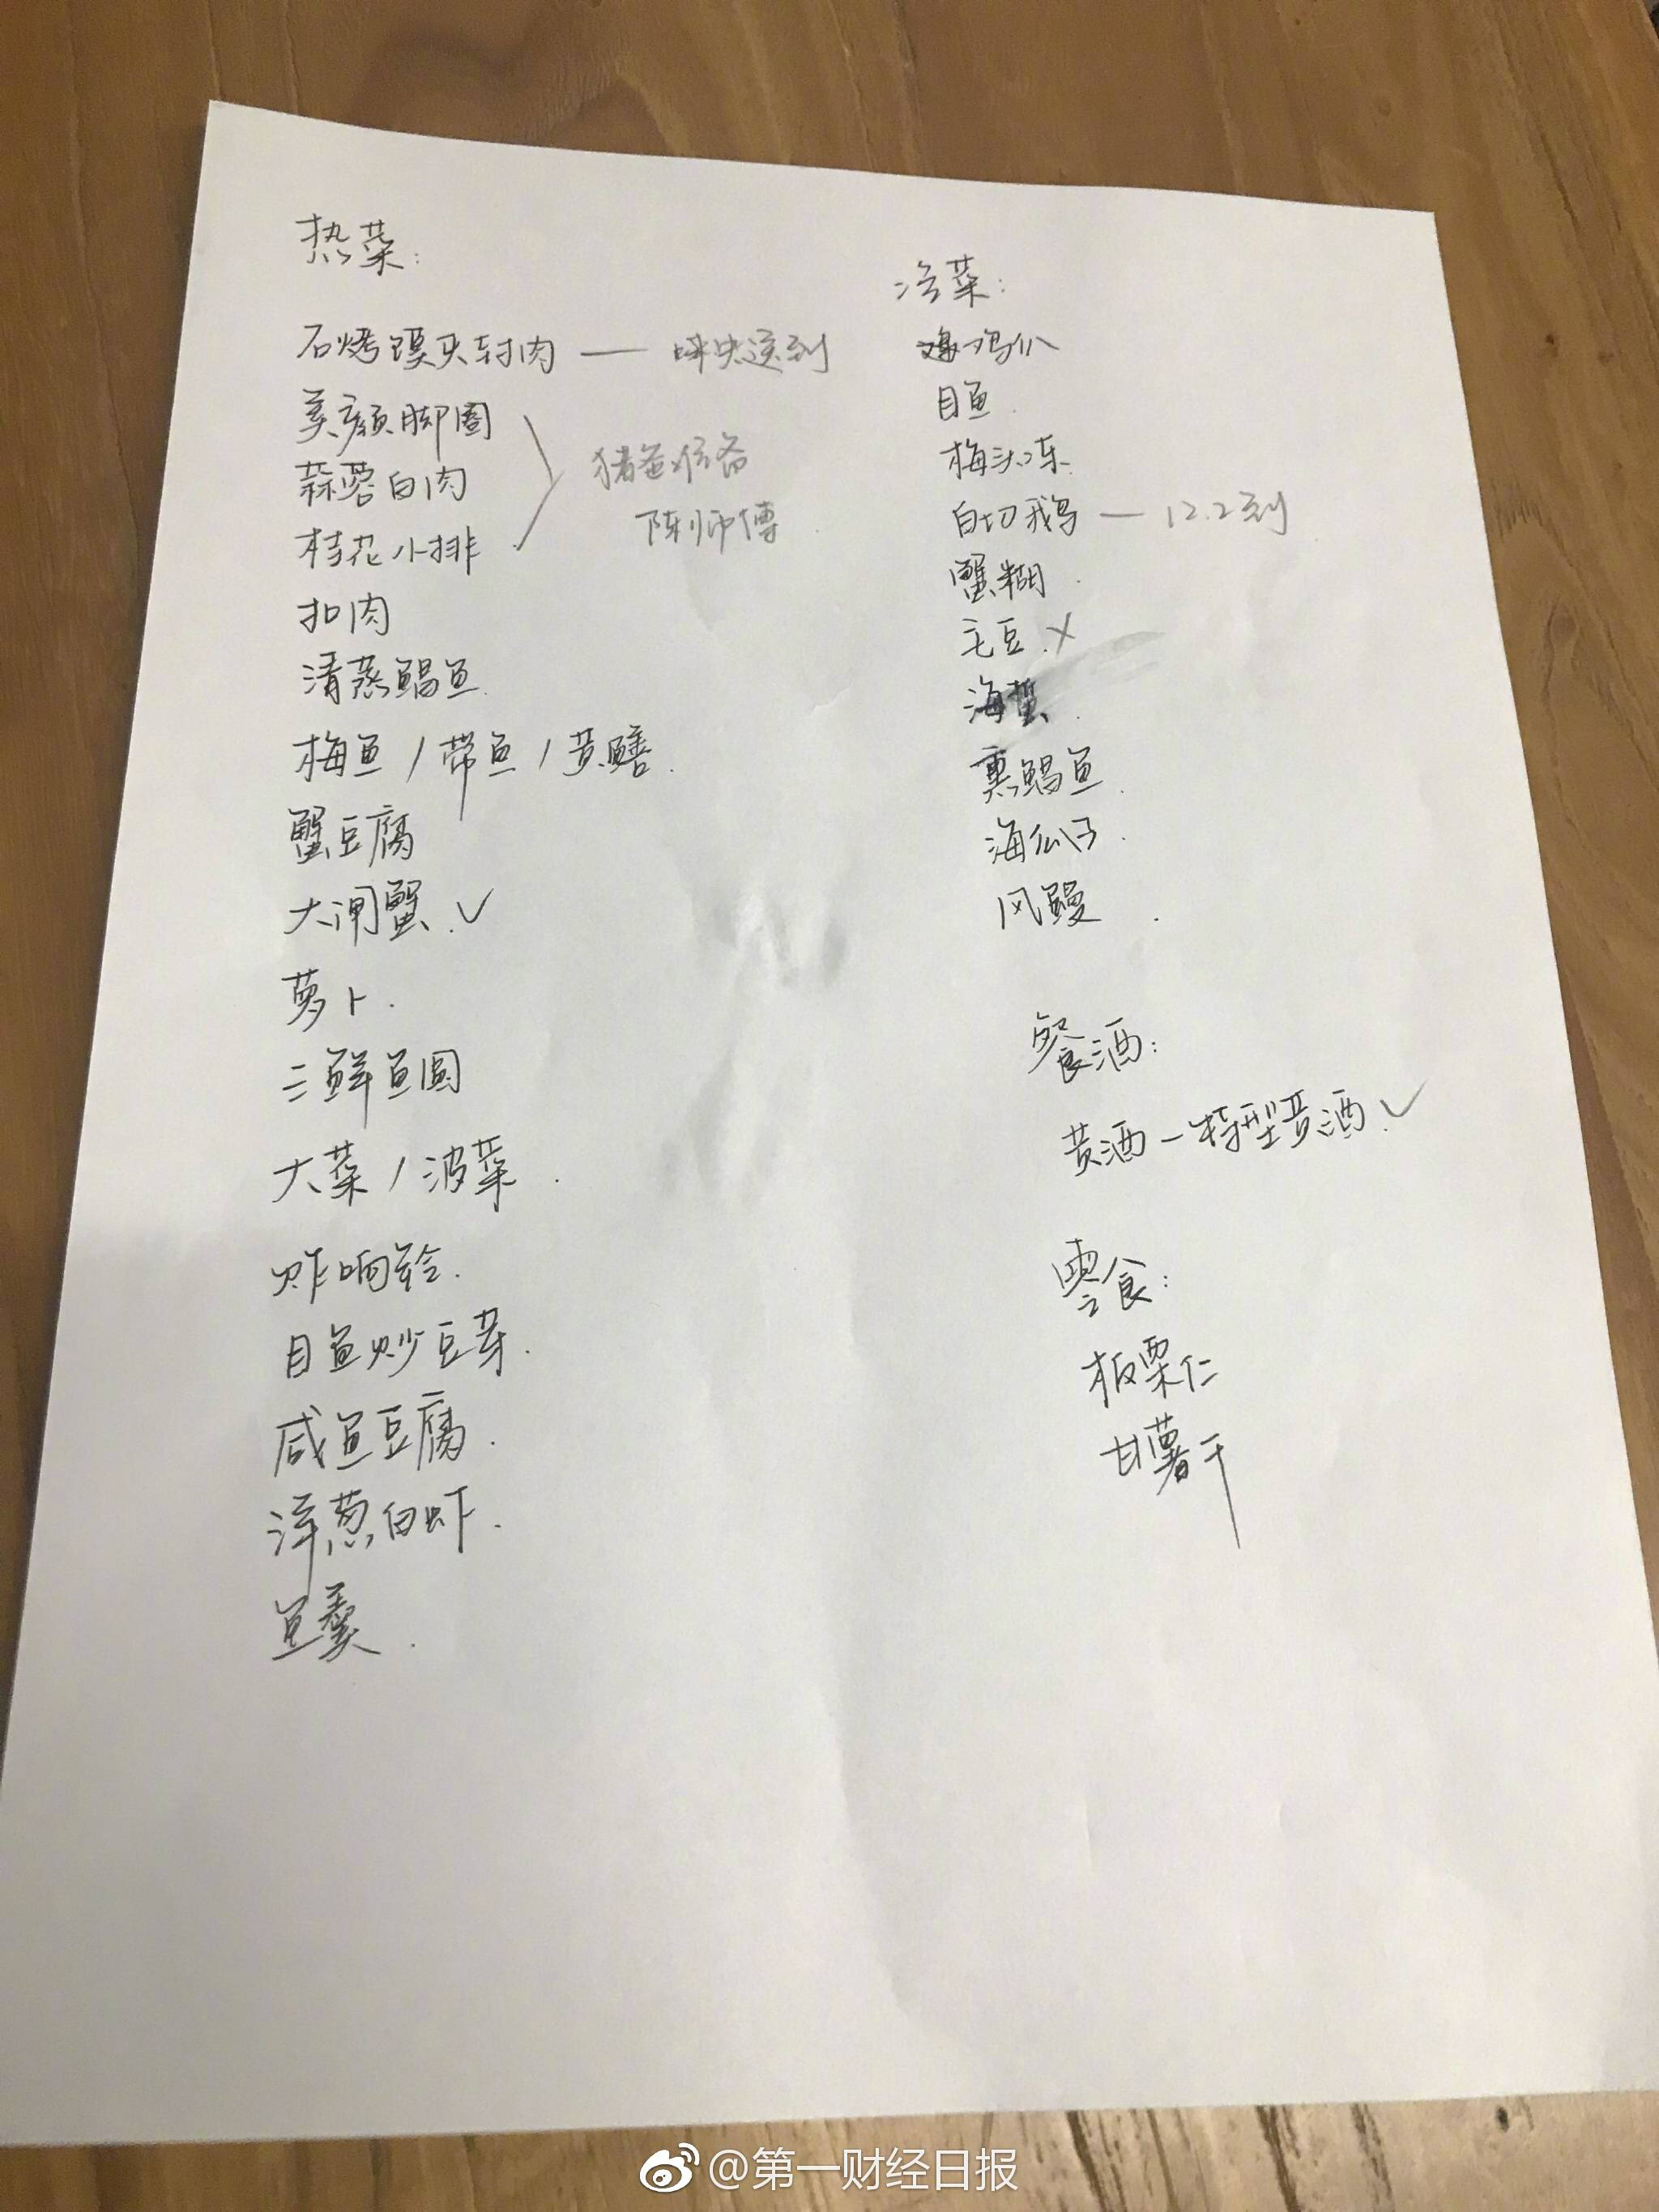 热菜:
石烤馍夹封肉 — 送到
美颜脚圈
蒜蓉白肉
猪爸准备
陈师傅
桂花小排
扣肉
清蒸鲳鱼
梅鱼/带鱼/黄鳝.
蟹豆腐
大闸蟹.✓
萝卜.
三鲜鱼圆
大菜/波菜.
炸响铃.
目鱼炒豆芽.
咸鱼豆腐.
洋葱白虾.
鱼羹.
冷菜:
鸡爪
目鱼.
梅头冻.
白切鹅 — 12.2到
蟹糊.
毛豆.×
海蜇.
熏鲳鱼.
海瓜子.
风鳗.
餐酒:
黄酒—特型黄酒.✓
零食:
板栗仁
甘薯干
@第一财经日报